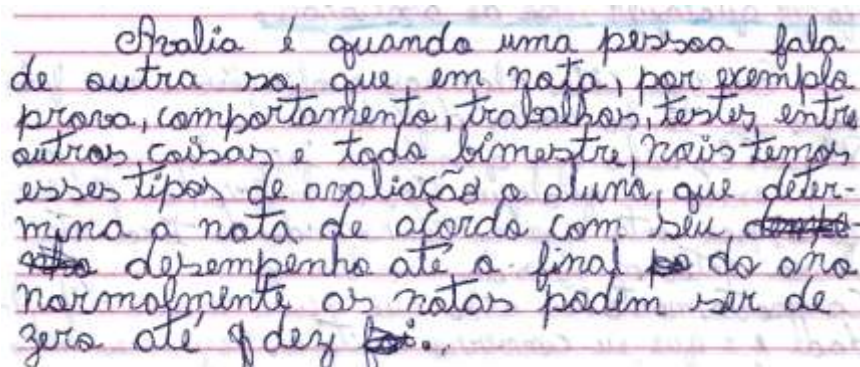 Avalia é quando uma pessoa fala
de outra so, que, em nota, por exemplo
prova, comportamento, trabalhos, testes, entre
outras, coisas e todo bimestre, nois temos
esses tipos de avaliação o aluno, que deter-
mina a nota de acordo com seu
desempenho até o final do ano
normalmente as notas podem ser de
zero até dez